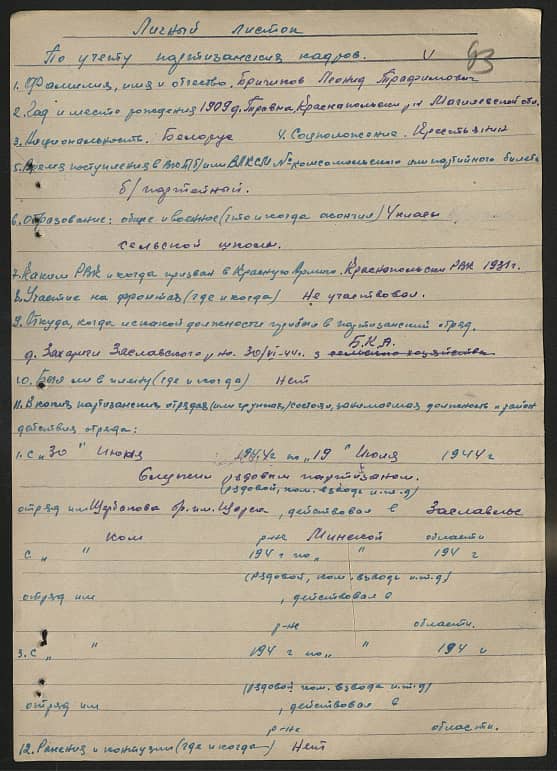 Личный листок
По учету партизанских кадров. V 93
1. Фамилия, имя и отчество. Бричиков Леонид Трафимович
2. Год и место рождения 1909 д. Травна, Краснапольски р-н Магилевской обл.
3. Национальность. Белорус 4. Соцположение. Крестьянин
5. Время поступления в ВКП(б) или ВЛКСМ № комсомольского или партийного билета
б/партейный.
6. Образование: общее и военное (что и когда окончил) 4 класы
сельской школы.
7. Каким РВК и когда призван в Красную Армию. Краснопольски РВК 1931 г.
8. Участие на фронтах (где и когда) Не участвовал.
9. Откуда, когда и с какой должности прибыл в партизанский отряд.
Б.К.А.
д. Захаричи Заславского р-на. 30/VI-44г. з сельского хозяйства
10. Был ли в плену (где и когда) Нет
11. В каких партизанских отрядах (или группах) состоял, занимаемая должность и район
действия отряда:
1. С „30" Июня 1944 г по „19" Июля 1944 г
Служил рядовым партизаном.
(рядовой, ком. взвода и.т.д)
отряд им Щербакова бр. им. Щорса, действовал в Заславльс
ком р-не Минской области
С „ " 194 г по „ " 194 г
(рядовой, ком. взвода и.т.д)
отряд им , действовал в
р-не области.
3. С „ " 194 г по „ " 194 г
(рядовой ком. взвода и.т.д)
отряд им , действовал в
р-не области.
12. Ранения и контузии (где и когда) Нет